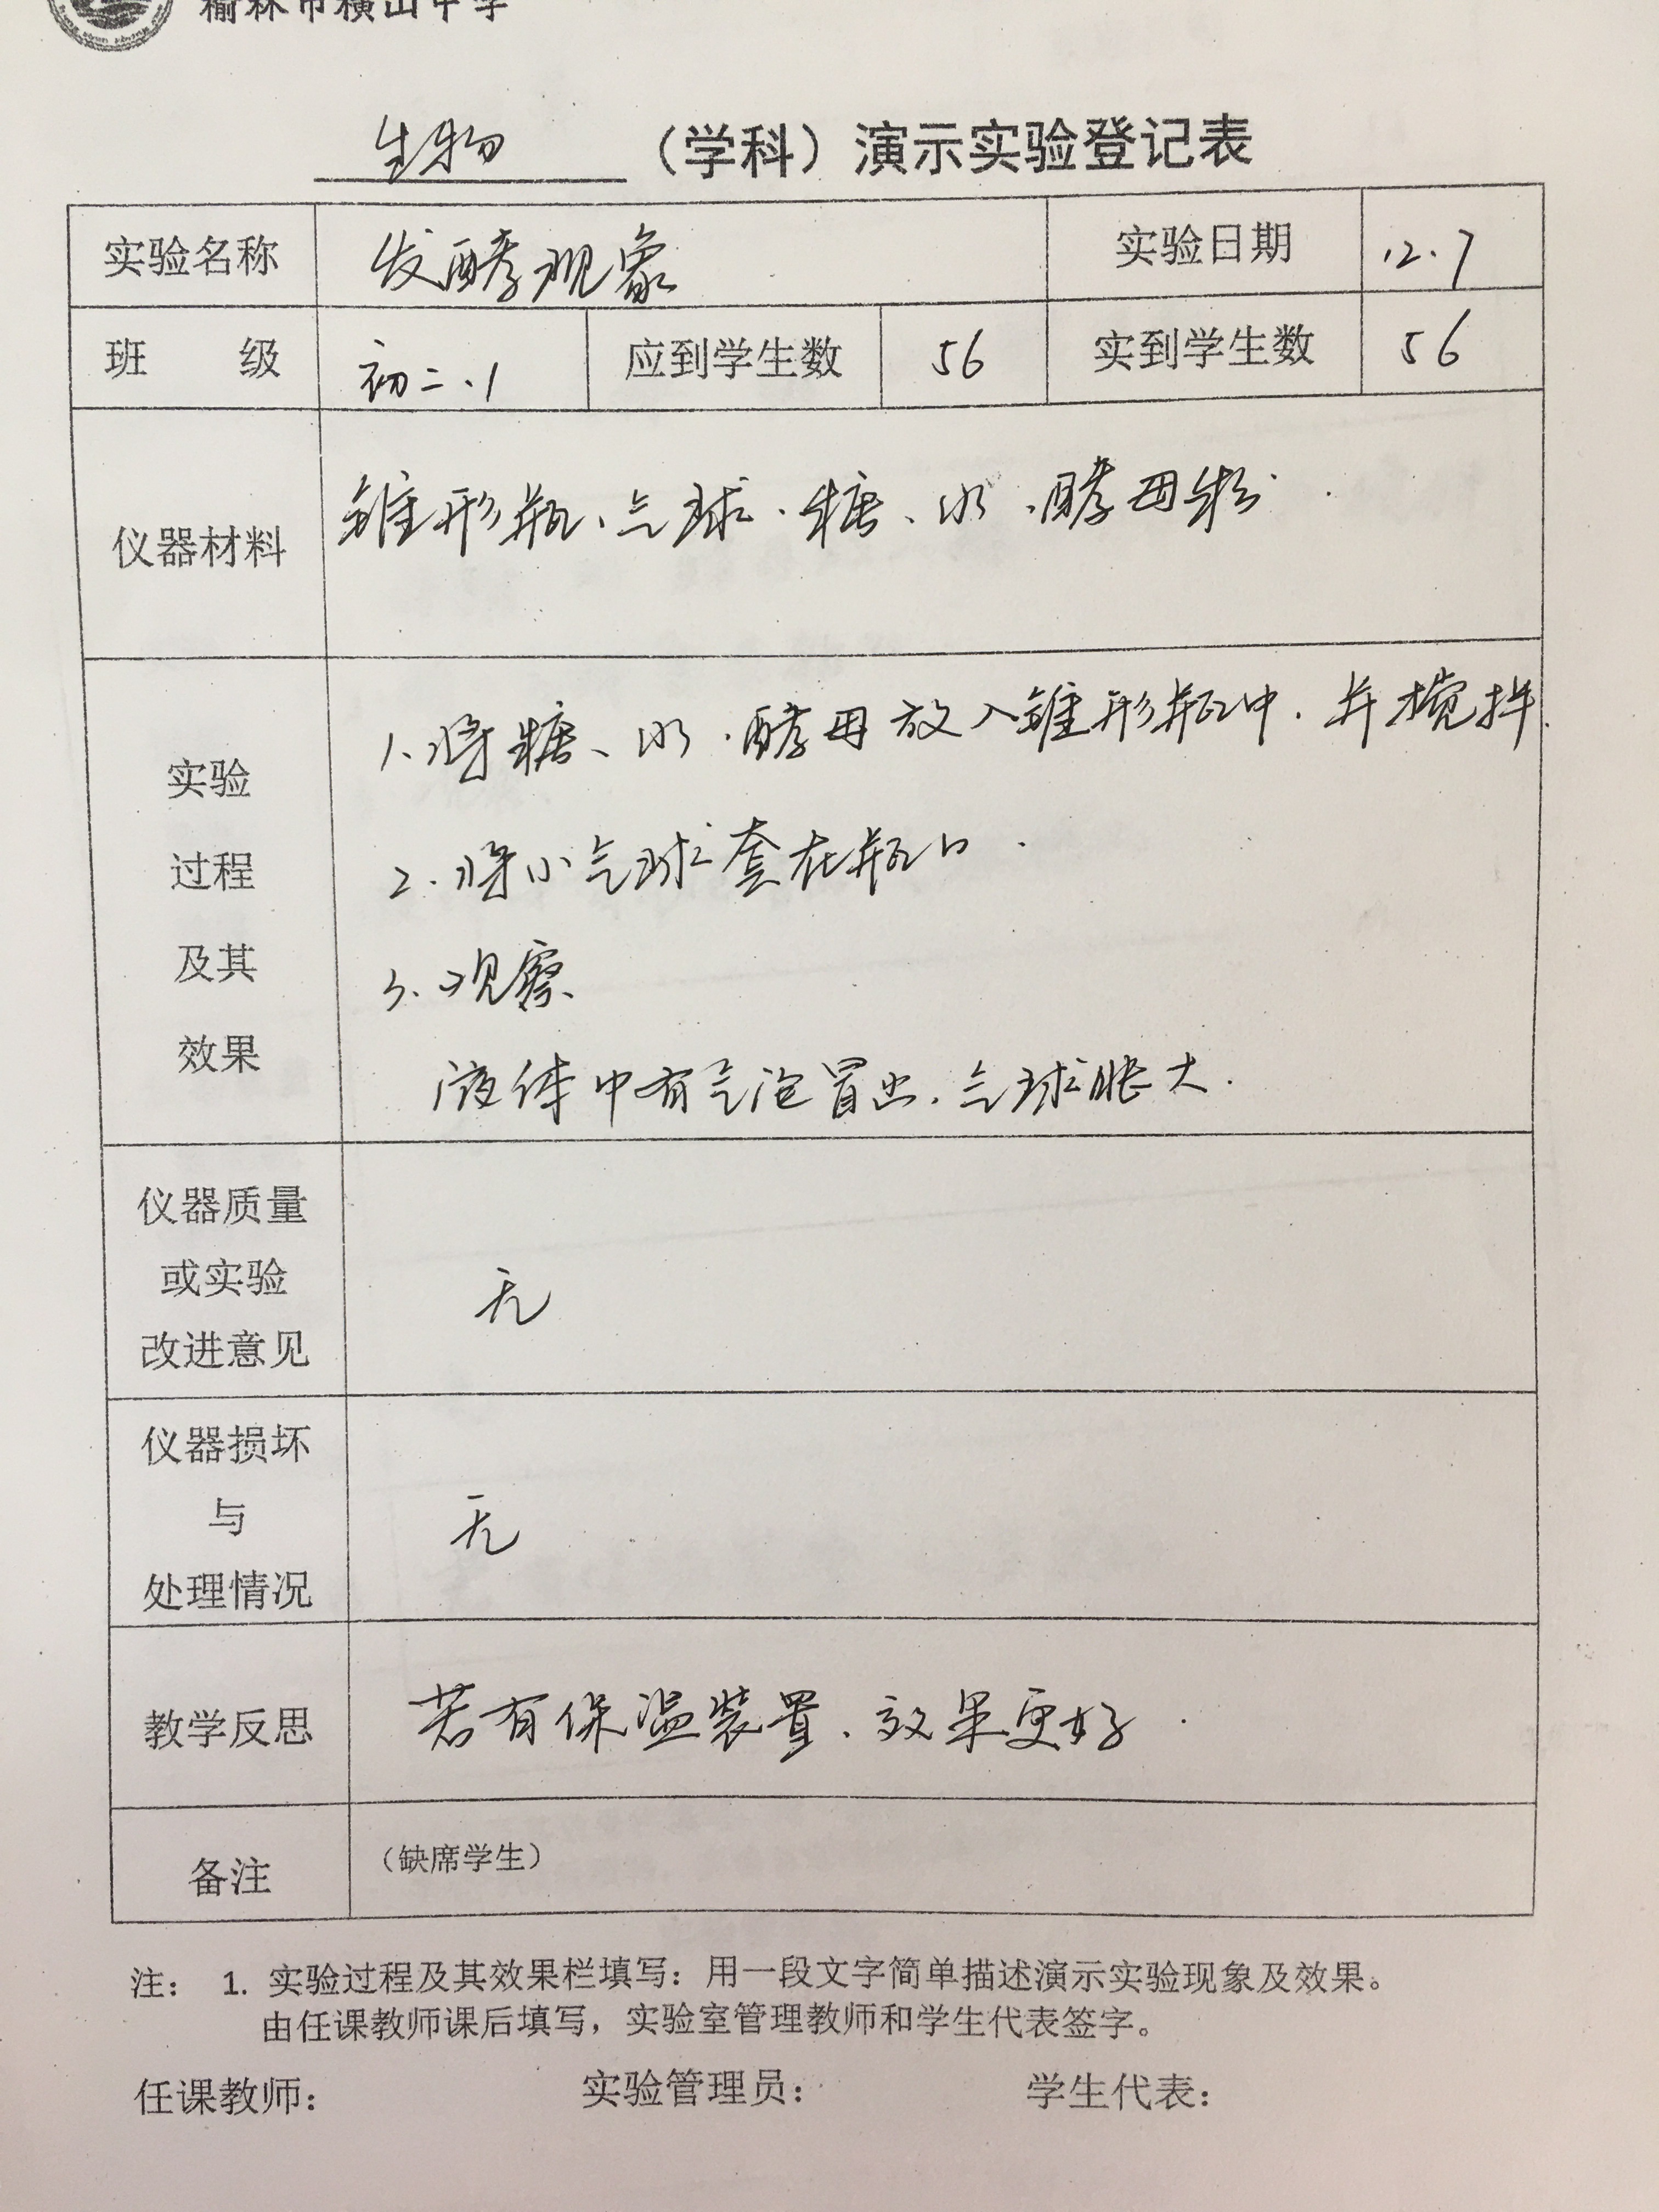 榆林市横山中学
生物（学科）演示实验登记表
实验名称 发酵现象 实验日期 12.7
班 级 初二.1 应到学生数 56 实到学生数 56
仪器材料 锥形瓶、气球、糖、水、酵母粉.
实验
过程
及其
效果
1.将糖、水、酵母放入锥形瓶中.并搅拌.
2.将小气球套在瓶口.
3.观察
液体中有气泡冒出.气球胀大.
仪器质量
或实验
改进意见
无
仪器损坏
与
处理情况
无
教学反思 若有保温装置、效果更好.
备注 （缺席学生）
注： 1. 实验过程及其效果栏填写：用一段文字简单描述演示实验现象及效果。
由任课教师课后填写，实验室管理教师和学生代表签字。
任课教师： 实验管理员： 学生代表：